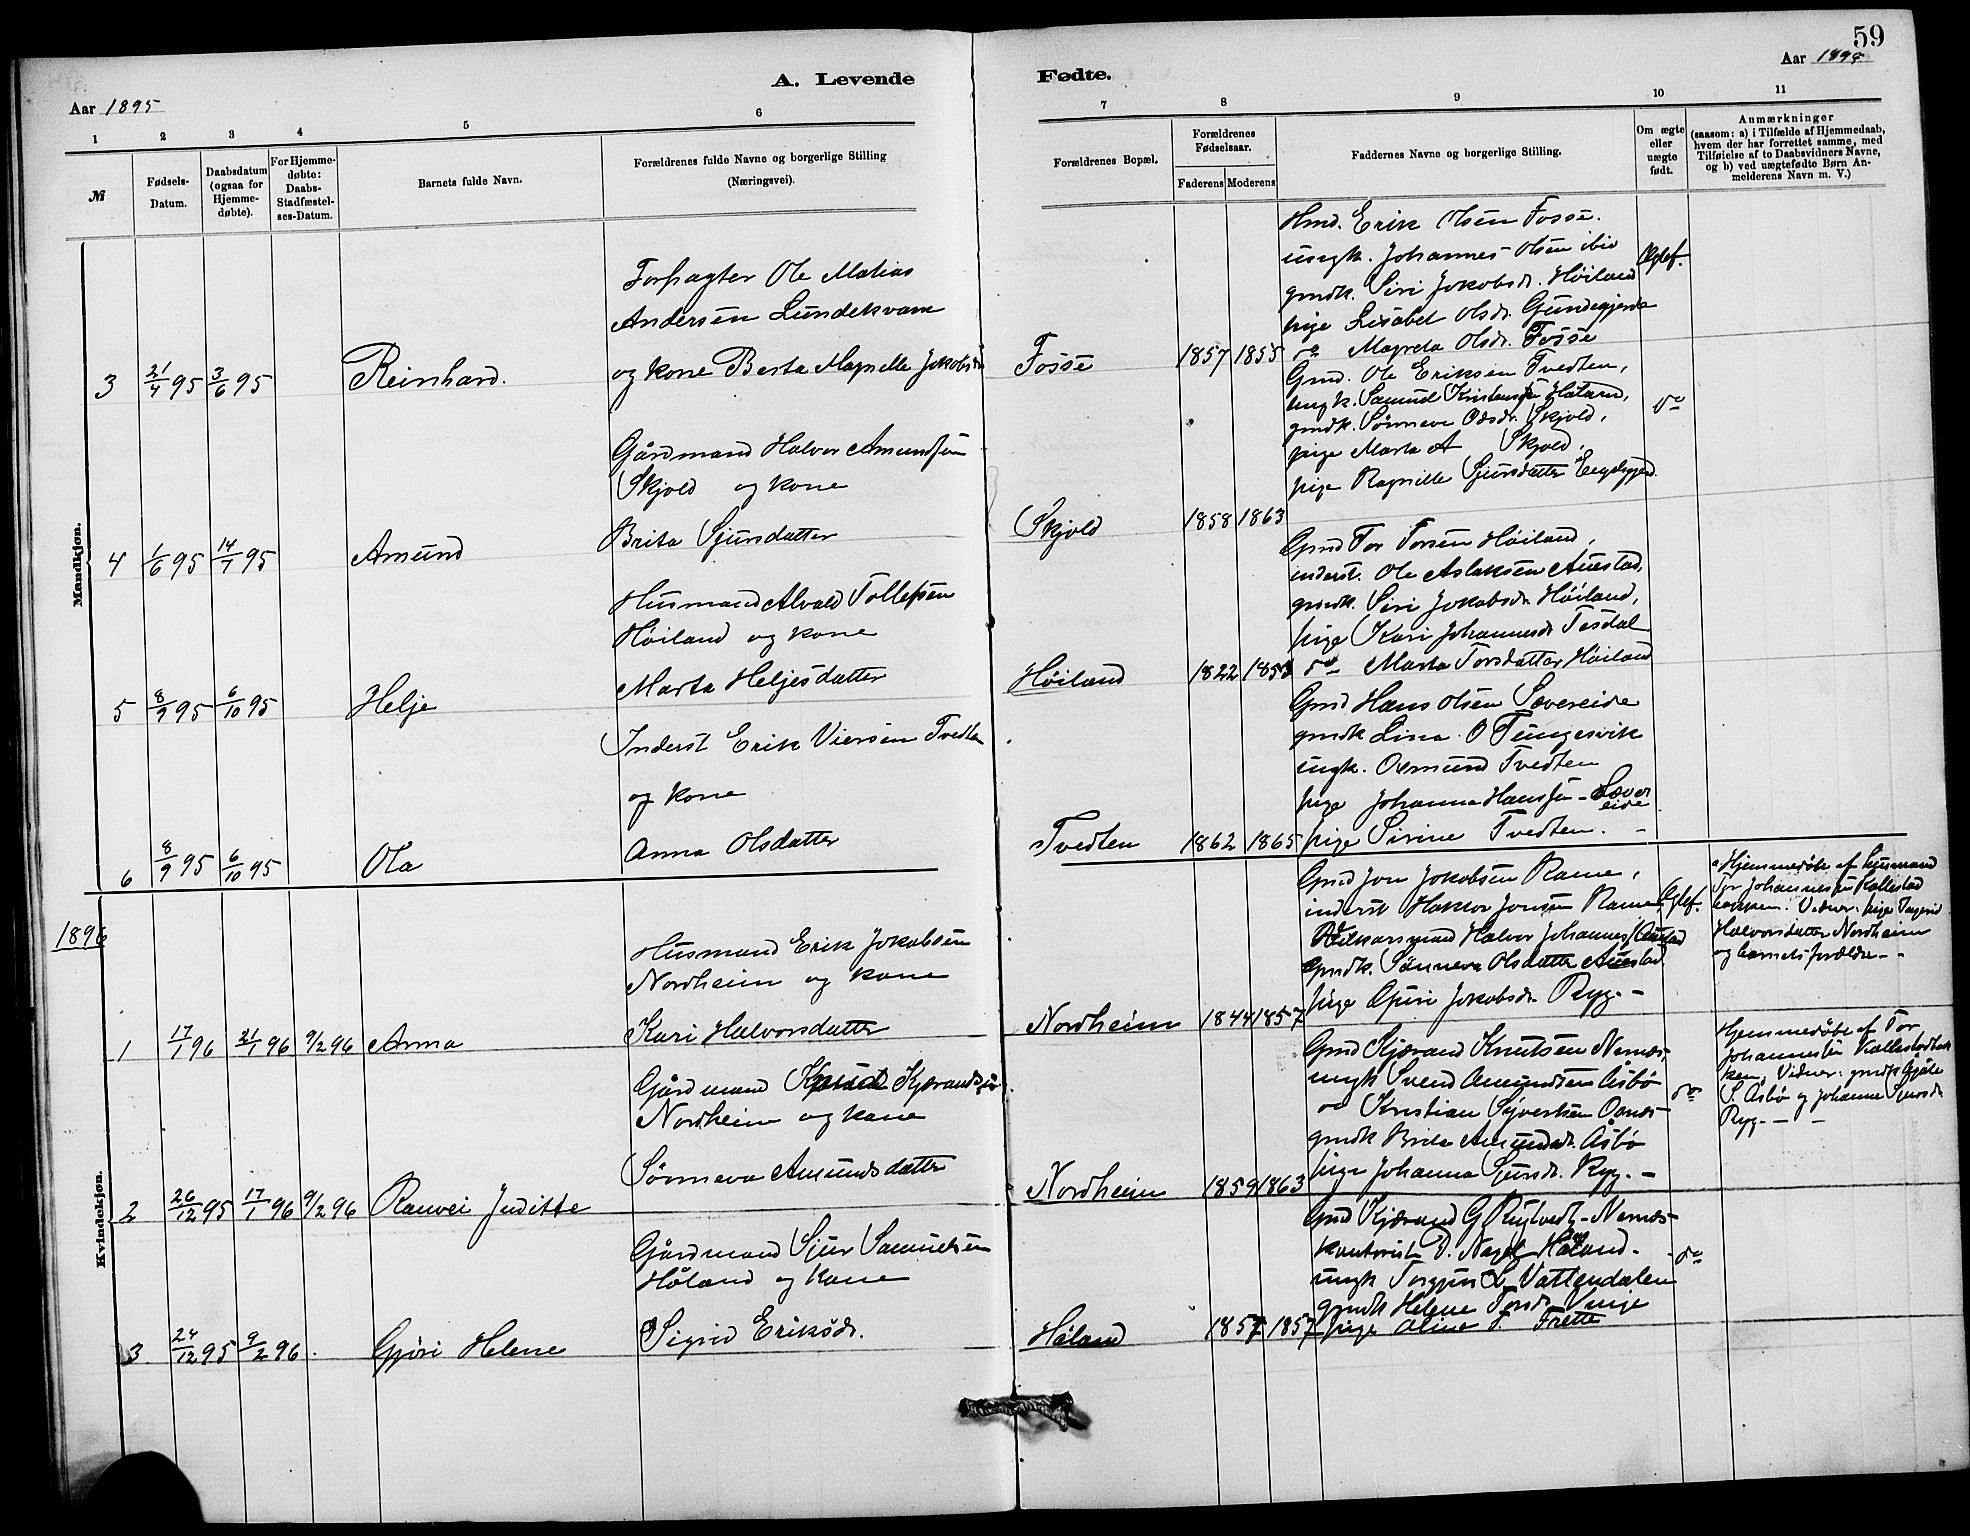 59
Aar 1895
A. Levende
Fødte.
Aar 1895
1 2 3 4 5 6
7 8 9 10 11
№
Fødsels-Datum.
Daabsdatum (ogsaa for Hjemme-døbte).
For Hjemme-døbte: Daabs-Stadfæstel-ses-Datum.
Barnets fulde Navn.
Forældrenes fulde Navne og borgerlige Stilling
(Næringsvei).
Forældrenes Bopæl.
Forældrenes Fødselsaar.
Faderens Moderens
Faddernes Navne og borgerlige Stilling.
Om ægte eller uægte født.
Anmærkninger
(saasom: a) i Tilfælde af Hjemmedaab,
hvem der har forrettet samme, med
Tilføielse af to Daabsvidners Navne,
og b) ved uægtefødte Børn An-
melderens Navn m. V.)
Mandkjøn.
3 21/4 95 3/6 95 Reinhard.
Forpagter Ole Matias
Andersen Lundekvam
og kone Berta Magnille Jakobsd
Fosse 1857 1855
Hmd. Erik Olsen Fosse.
ungk. Johannes Olsen ibid
gmdk. Siri Jakobsdr. Høiland
pige Lisabet Olsdr.
do Magreta Olsdr. Fosse
Ægtef.
4 1/6 95 14/7 95 Amund
Gårdmand Halvor Amundsen
Skjold og kone
Brita Sjursdatter
Skjold 1858 1863
Gmd. Ole Eriksen Tvedten,
ungk. Samuel Håland,
gmdk. Sønneva Skjold,
pige Marta A Skjold.
pige Ragnille Sjursdatter
do
5 8/9 95 6/10 95 Helje
Husmand Alvald Tollefsen
Høiland og kone
Marta Heljesdatter
Høiland 1822 1853
Gmd Tor Torsen Høiland,
inderst. Ole Aslaksen Auestad,
gmdk. Siri Jokobsdr Høiland,
pige Kari Johannesdr Tesdal
do Marta Torsdatter Høiland
6 8/9 95 6/10 95 Ola
Inderst Erik Viersen Tvedten
og kone
Anna Olsdatter
Tvedten 1862 1865
Gmd Hans Olsen Sævereide
gmdk Lina O Tungesvik
ungk. Osmund Tvedten
pige Johanna Hansen - Sævereide
pige Sirine Tvedten. -
1896
Kvindekjøn.
1 17/1 96 21/1 96 9/2 96 Anna
Husmand Erik Jokobsen
Nordheim og kone
Kari Halvorsdatter
Nordheim 1844 1857
Gmd Jon Jokobsen Rame,
inderst Haktor Jonsen Rame,
Vilkorsmand Halvor Johannes Auestad
Gmdk. Sønneva Olsdatter Auestad
pige Guri Jokobsdr Ryg. -
Ægtef.
Hjemmedøbt af husmand
Tor Johannesen Kallestad
bakken. Vidner: pige
Halvorsdatter Nordheim
og barnets forældre - -
2 26/12 95 17/1 96 9/2 96 Ranvei Juditte
Gårdmand Knud Kjærandsen
Nordheim og kone
Sønneva Amundsdatter
Nordheim 1859 1863
Gmd Kjærand Knutsen Nernæs
ungk Svend Amundsen Åsbø
do Kristian Syvertsen
gmdk Brita Amundsdr. Åsbø
pige Johanna Sjursdr. Ryg. -
do
Hjemmedøbt af Tor
Johannesen Kallestadbak
ken, Vidner: gmdk
S. Åsbø og Johanne Sjursdr
Ryg - -
3 24/12 95 9/2 96 Gjøri Helene
Gårdmand Sjur Samuelsen
Håland og kone
Sigrid Eriksdr.
Håland 1857 1857
Gmd Kjærand G Rygtvedt - Nernæs -
kontorist D. Nagel Håland -
ungk Torgjus L Vattendalen
gmdk Helene Torsdr Vinje
pige Oline T. Frette
do